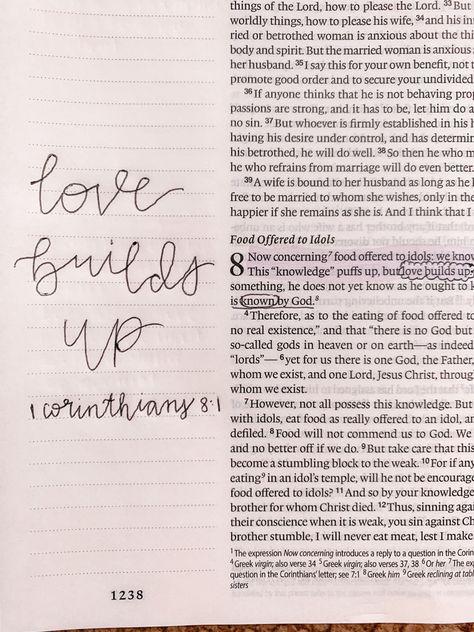 love
builds
up
1 corinthians 8:1
1238
things of the Lord, how to please the Lord. 33 But
worldly things, how to please his wife, 34 and his in
ried or betrothed woman is anxious about the thi
body and spirit. But the married woman is anxious
her husband. 35 I say this for your own benefit, not t
promote good order and to secure your undivided
36 If anyone thinks that he is not behaving prop
passions are strong, and it has to be, let him do a
no sin. 37 But whoever is firmly established in his h
having his desire under control, and has determin
his betrothed, he will do well. 38 So then he who m
he who refrains from marriage will do even better.
39 A wife is bound to her husband as long as he l
free to be married to whom she wishes, only in the
happier if she remains as she is. And I think that I
Food Offered to Idols
8 Now concerning 7 food offered to idols: we know
This “knowledge” puffs up, but love builds up.
something, he does not yet know as he ought to k
is known by God. 8
4 Therefore, as to the eating of food offered to
no real existence,” and that “there is no God but
so-called gods in heaven or on earth—as indeed
“lords”— 6 yet for us there is one God, the Father,
whom we exist, and one Lord, Jesus Christ, throug
whom we exist.
7 However, not all possess this knowledge. But
with idols, eat food as really offered to an idol, an
defiled. 8 Food will not commend us to God. We
and no better off if we do. 9 But take care that this
become a stumbling block to the weak. 10 For if any
eating 9 in an idol’s temple, will he not be encourage
food offered to idols? 11 And so by your knowledge
brother for whom Christ died. 12 Thus, sinning agai
their conscience when it is weak, you sin against Ch
brother stumble, I will never eat meat, lest I make
1 The expression Now concerning introduces a reply to a question in the Corin
4 Greek virgin; also verse 34 5 Greek virgin; also verses 37, 38 6 Or her 7 The exp
question in the Corinthians’ letter; see 7:1 8 Greek him 9 Greek reclining at tabl
sisters